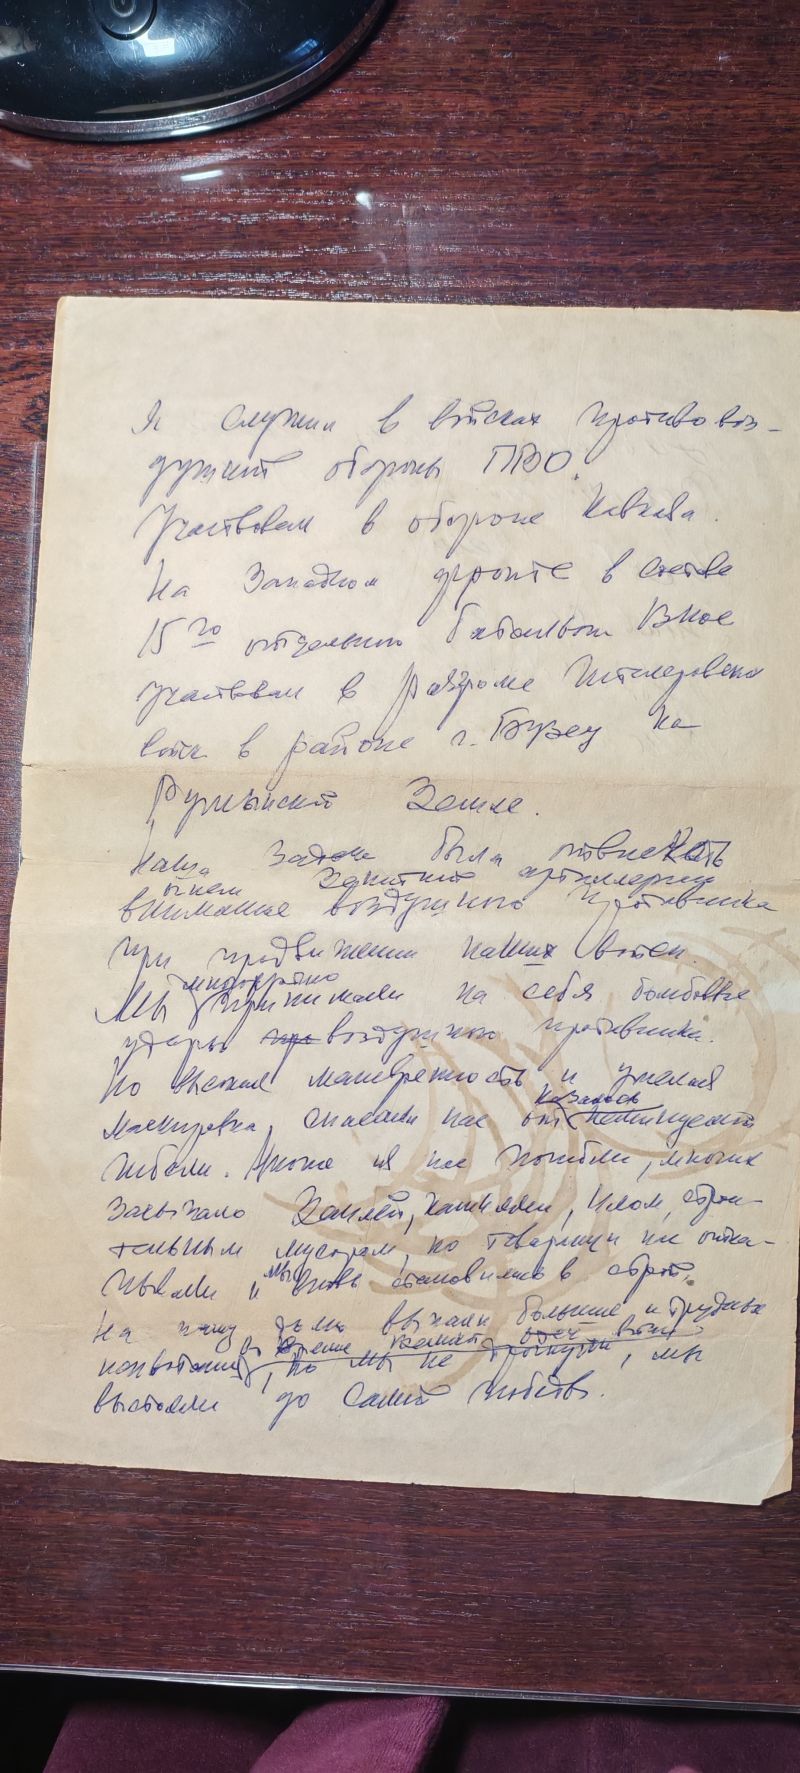 Я служил в войсках противовоз-
душной обороны ПВО.
Участвовал в обороне Кавказа.
На Западном фронте в составе
15го отдельного батальона ВНОС
участвовал в разгроме гитлеровских
войск в районе г. Бузеу на
Румынской Земле.
Наша задача была отвлекать
огнем зенитной артиллерии
внимание воздушного противника
при продвижении наших войск.
многократно
Мы принимали на себя бомбовые
удары воздушного противника.
Но высокая маневренность и умелая
казалось
маскировка, спасали нас от неминуемой
гибели. Многие из нас погибли, многих
засыпало Землей, камнями, илом, строи-
тельным мусором, но товарищи нас отка-
пывали и мы вновь становились в строй.
На нашу долю выпали большие и трудные
во время Велик отеч войны
испытания, но мы не дрогнули, мы
выстояли до самой победы.